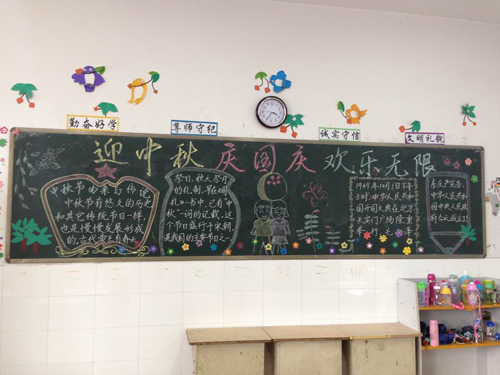 勤奋好学
尊师守纪
诚实守信
文明礼貌
迎中秋庆国庆欢乐无限
中秋节由来与传说
中秋节有悠久的历史
和其它传统节日一样,
也是慢慢发展形成
的古代帝王有春
祭日,秋天祭月
的礼制,早在《周
礼》一书中,已有“中
秋”一词的记载,这
个节日盛行于宋朝,
是我们的主要节日之一
1949年10月1日下午
3时,中华人民共和
国中央人民
广场隆重
举行
中华人民共和
国中央人民政
府今天成立了